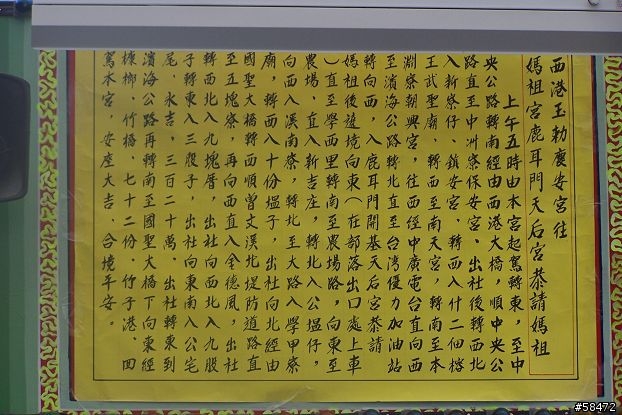 西港玉勅慶安宮往
媽祖宮鹿耳門天后宮恭請媽祖
上午五時由本宮起駕轉東,至中
央公路轉南經由西港大橋,順中央公
路直至中洲寮保安宮、出社後轉西北
入新寮仔、鎮安宮、轉西入什二佃
王武聖廟、轉西至南天宮,轉南至本
淵寮朝興宮,往西經中廣電台直向西
至濱海公路轉北直至台灣優力加油站
轉向西,入鹿耳門開基天后宮恭請
媽祖後遶境向東(在部落出口處上車
)直至學西里轉南至農場路,向東至
農場,直入新吉庄,轉北入公塭仔,
向西入溪南寮,轉北至大路入學甲寮
廟,轉西入十份塭子,出社向北經由
國聖大橋轉西順曾文溪北堤防道路直
至五塊寮,再向西直入金德風,出社
轉西北入九塊厝,出社向西北入九股
子轉東入三股子,出社向東南入公宅
尾,永吉,三百二十萬,出社轉東到
濱海公路再轉南至國聖大橋下向東經
檳榔,竹橋,七十二份,竹子港,回
駕本宮,安座大吉、合境平安。
#58472